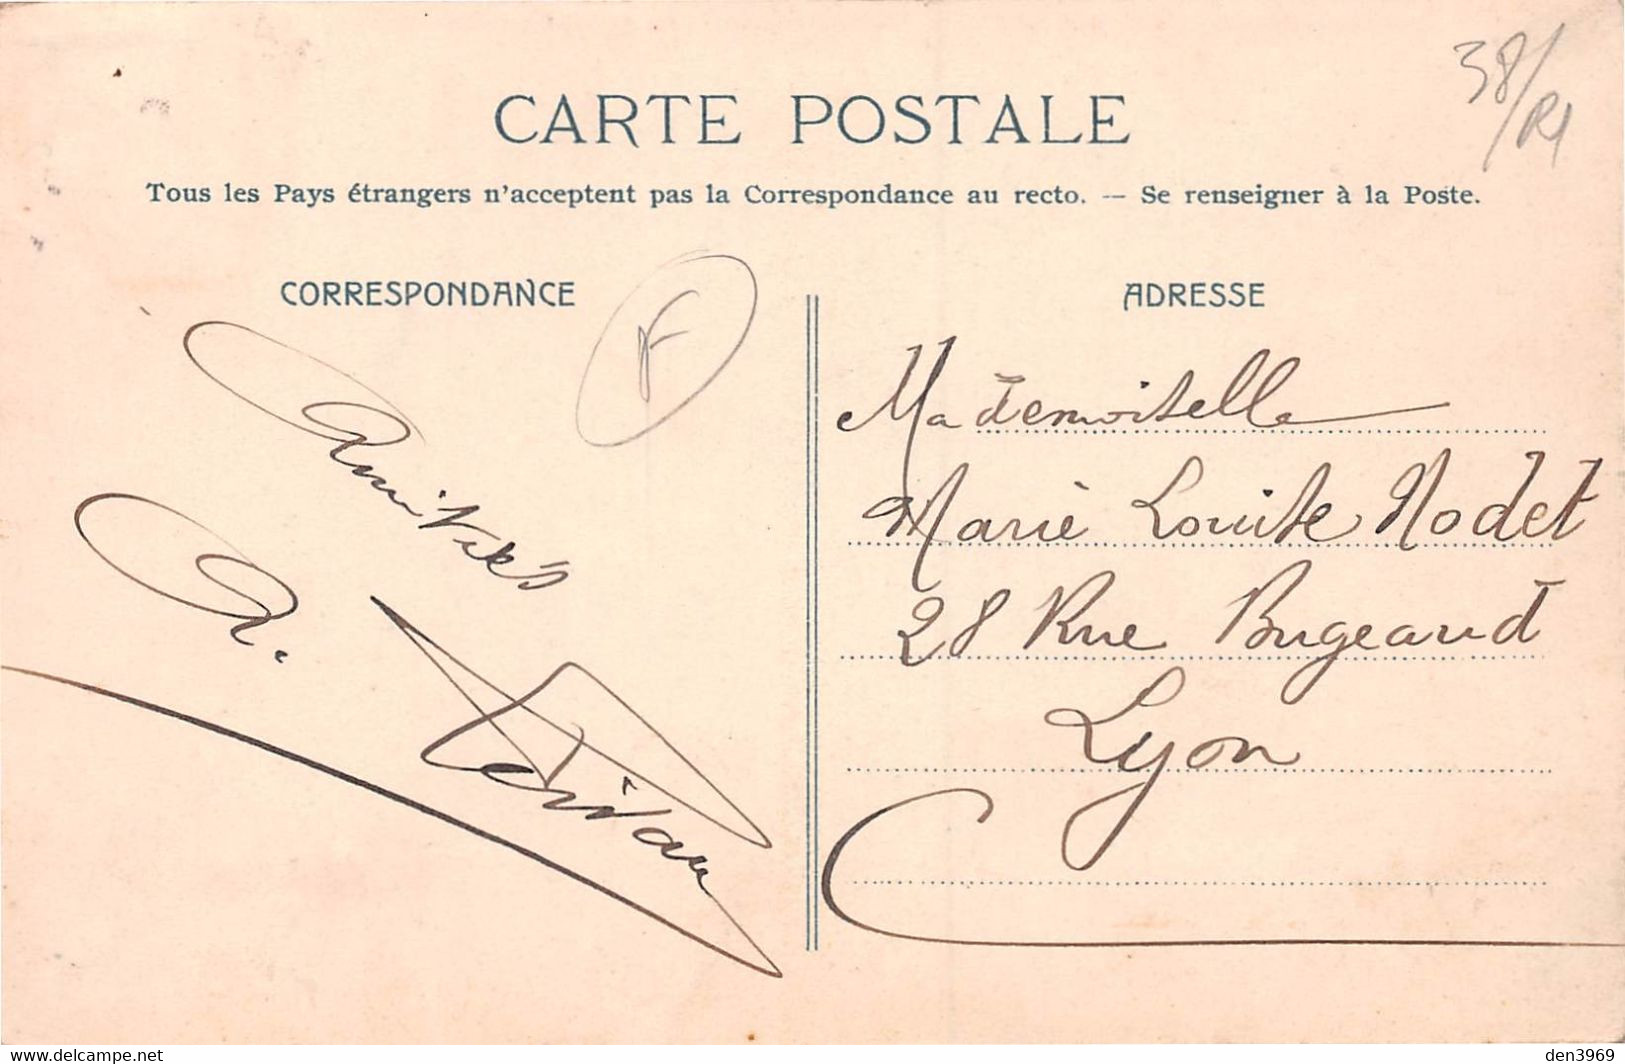 CARTE POSTALE
38/R1
Tous les Pays étrangers n'acceptent pas la Correspondance au recto. — Se renseigner à la Poste.
CORRESPONDANCE
F
Amitiés
A.
ADRESSE
Mademoiselle
Marie Louise Nodet
28 Rue Bugeaud
Lyon
www.delcampe.net
den3969